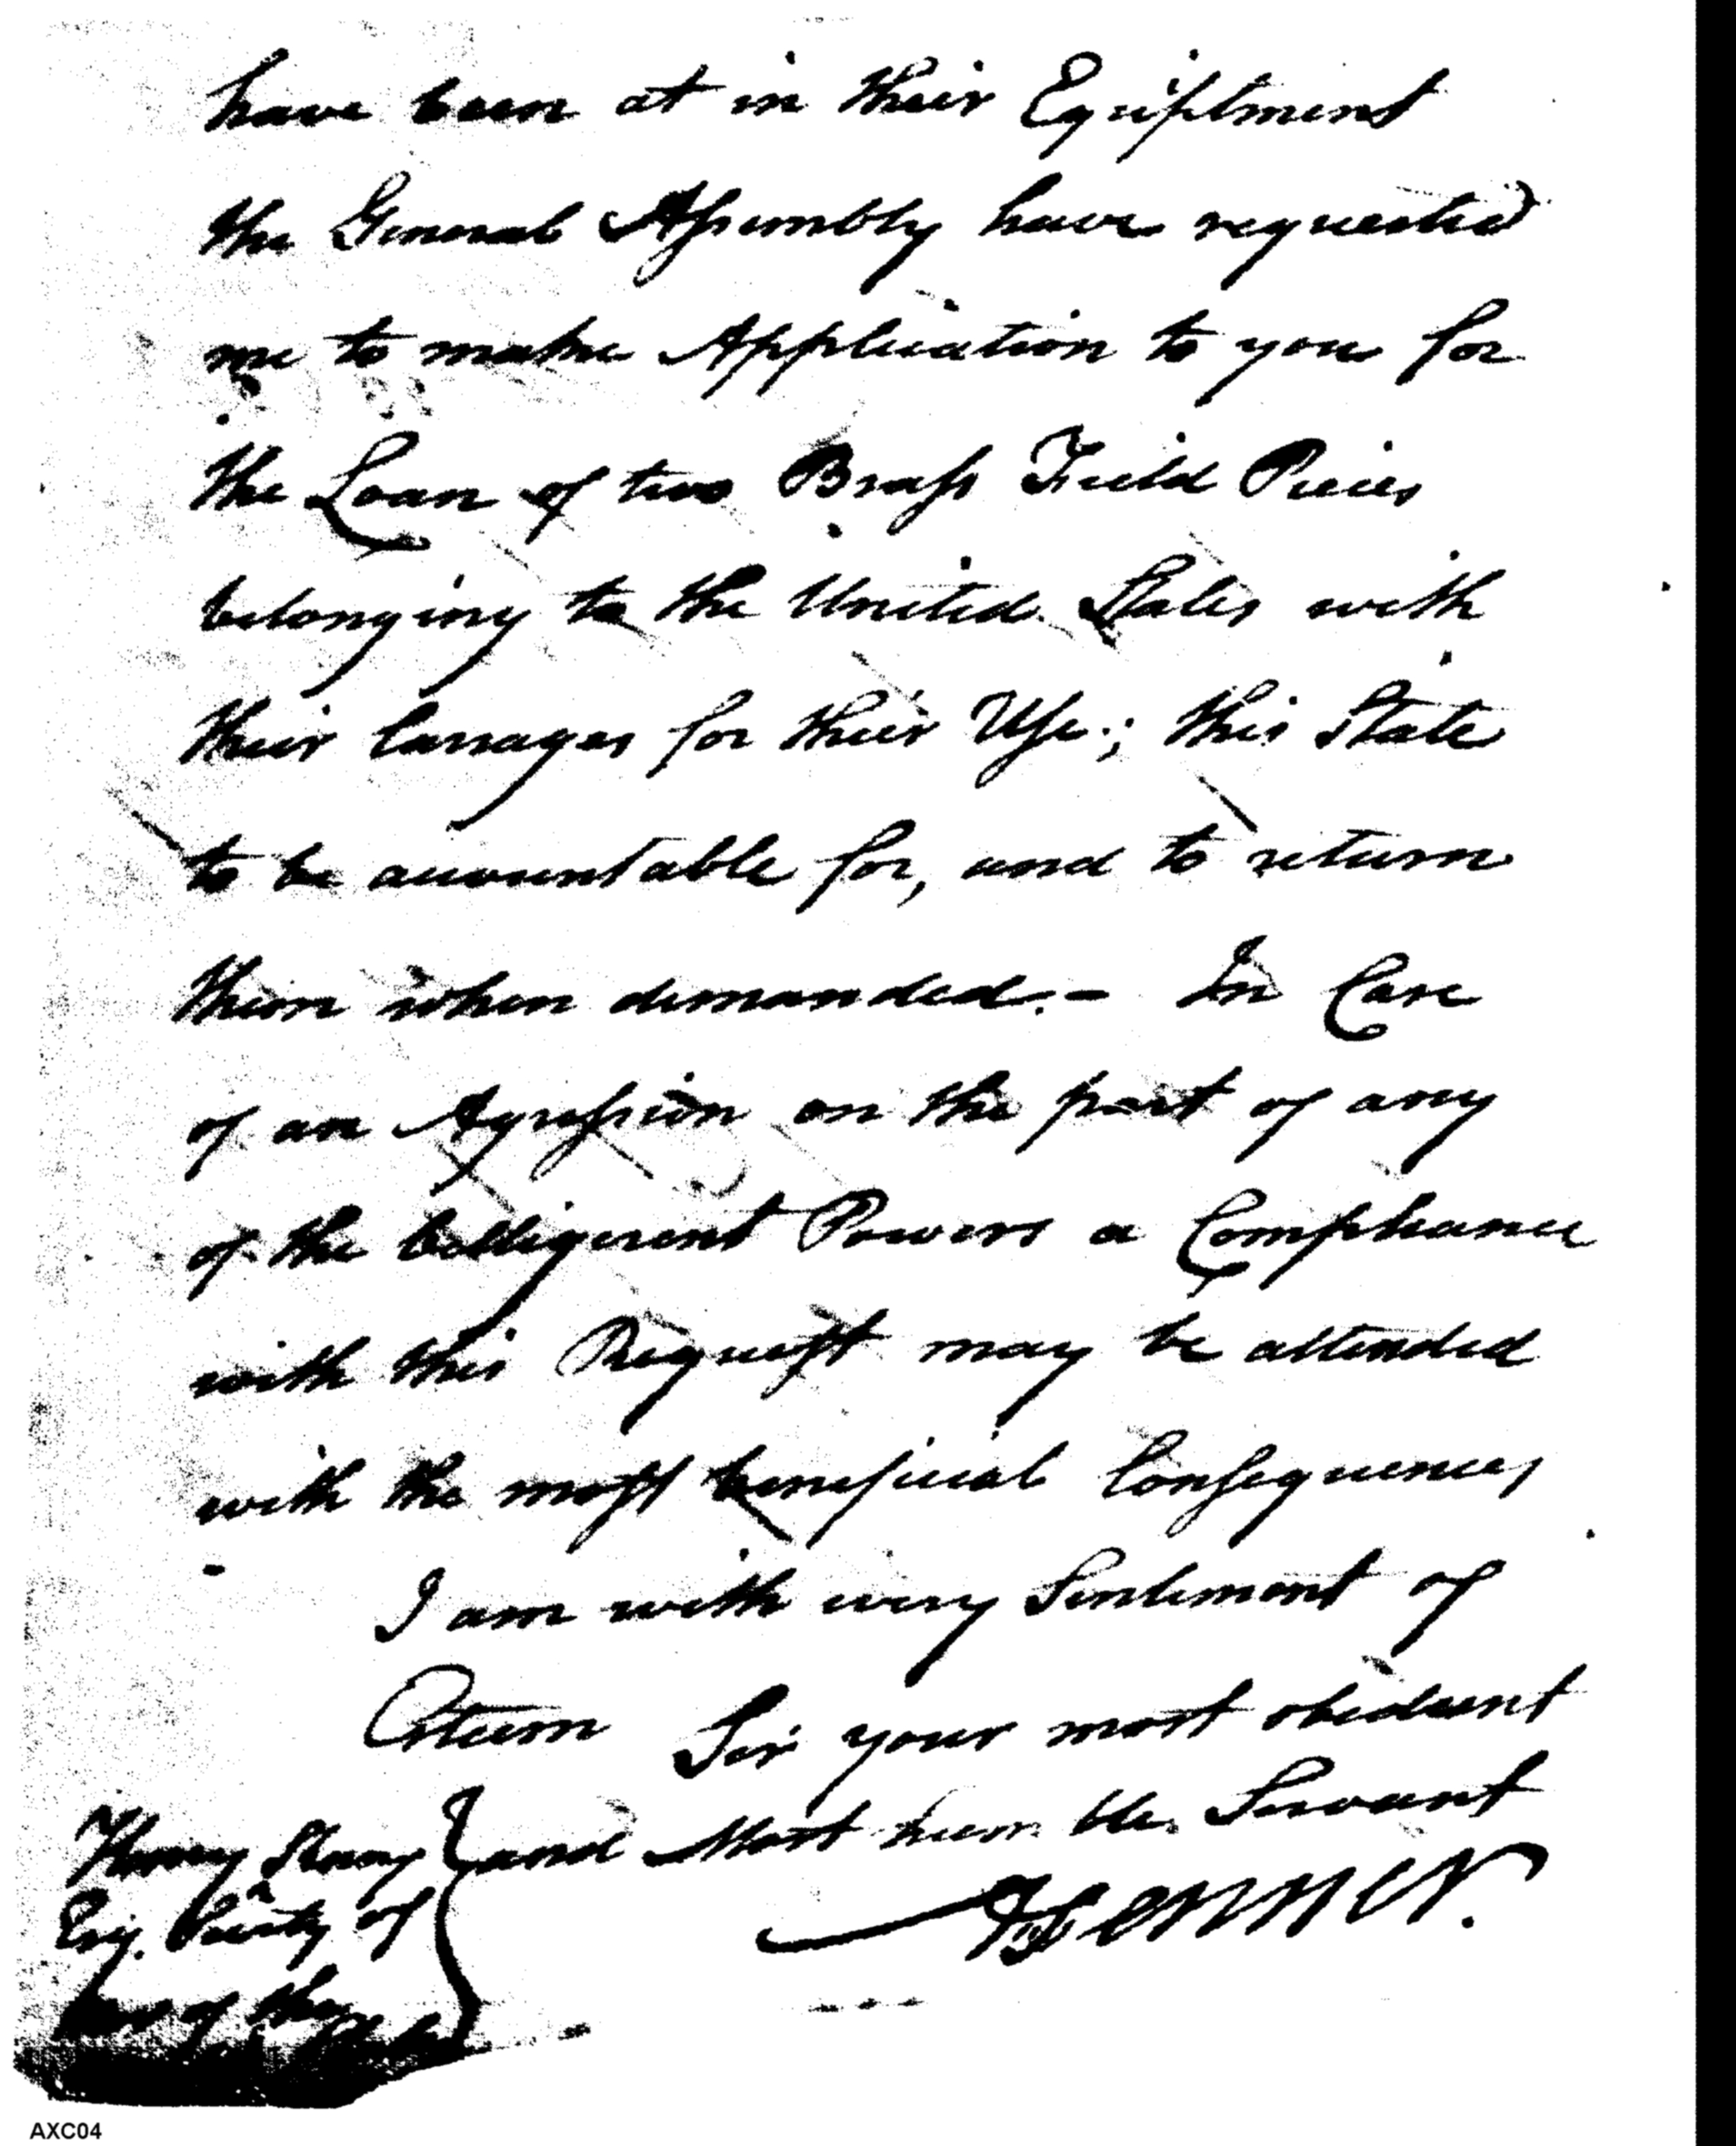 have been at in their Equiptment
the General Assembly have requested
me to make Application to you for
the Loan of two Brass Field Pieces
belonging to the United States with
their Carrages for their Use; this State
to be accountable for, and to return
them when demanded.- In Case
of an Agression on the part of any
of the belligerent Powers a Compliance
with this Request may be attended
with the most beneficial Consequences
I am with every Sentiment of
Esteem Sir your most obedient
and Most humble Servant
A Fenner.
Esqr. of
War of the
AXC04